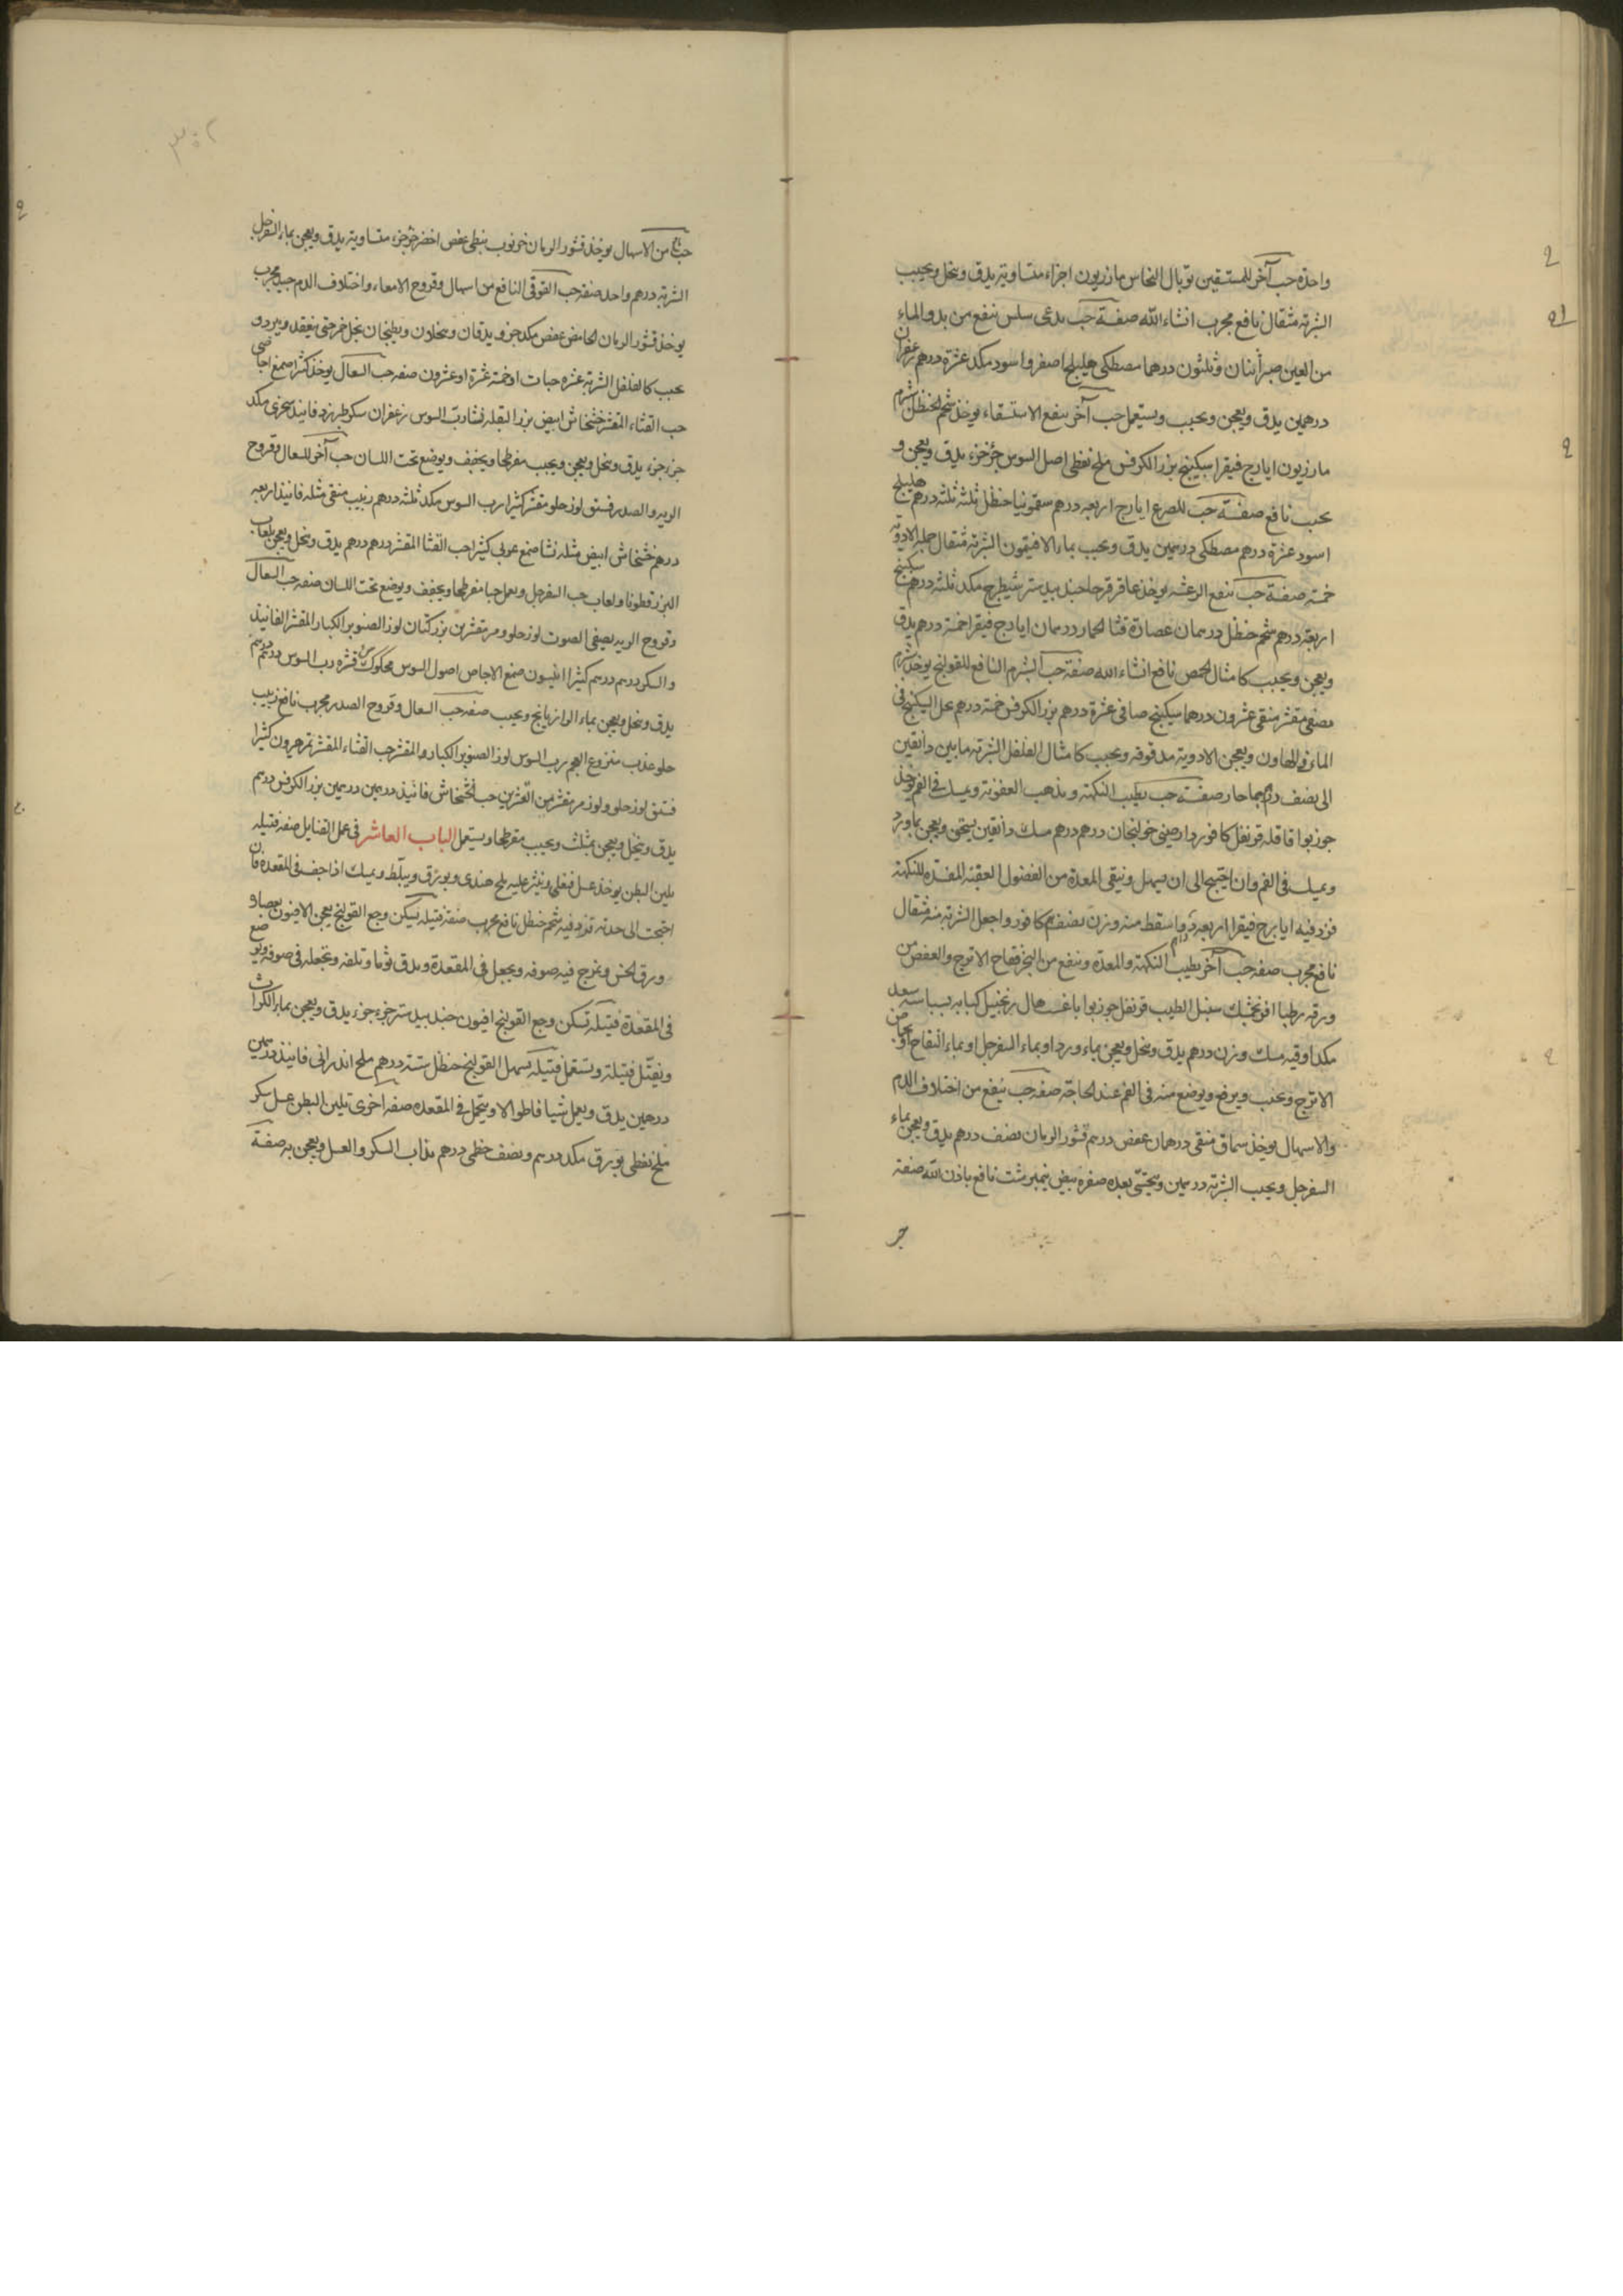 واحدة حب آخر للمستسقين توبال النحاس مازريون اجزاء متساوية يدق وينخل ويحبب
الشربة مثقال نافع مجرب انشاء الله صفة حب يدعى سلس ينفع من بدو الماء
من العين صبر اثنان وثلثون درهما مصطكى هليلج اصفر واسود مكد عشرة درهم زعفران
درهمين يدق ويعجن ويحبب ويستعمل حب آخر ينفع الاستسقاء يوخذ شحم الحنظل شبرم
مازريون ايارج فيقرا سكبينج بزر الكرفس ملح نفطى اصل السوس جزء جزء يدق ويعجن و
يحبب نافع صفة حب للصرع ايارج اربعة درهم سقمونيا حنظل ثلثه ثلثه درهم هليلج
اسود عشرة درهم مصطكى درهمين يدق ويحبب بماء الافتيمون الشربة مثقال جملة الادوية
خمسه صفة حب ينفع الرعشه يوخذ عاقر قرحا جندبيدستر شيطرج مكد ثلثه درهم سكبينج
اربعة درهم شحم حنظل درهمان عصارة قثا الحمار درهمان ايارج فيقرا خمسة درهم يدق
ويعجن ويحبب كامثال الحمص نافع انشاء الله صفة حب الشبرم النافع للقولنج يوخذ شبرم
مصفى مقشر منقى عشرون درهما سكبينج صافى عشرة درهم بزر الكرفس خمسة درهم يحل السكبينج فى
الماء فى الهاون ويعجن الادوية مدقوقه ويحبب كامثال الفلفل الشربة مابين دانقين
الى نصف درهم بماء حار صفة حب يطيب النكهة ويذهب العفونة ويمسك فى الفم يوخذ
جوزبوا قاقله قرنفل كافور دارصينى خولنجان درهم درهم مسك دانقين يسحق ويعجن بماورد
ويمسك فى الفم وان احتيج الى ان يسهل وينقى المعدة من الفضول العفنه المفسدة للنكهة
فزد فيه ايارج فيقرا اربعه دراهم واسقط منه وزن نصف درهم كافور واجعل الشربة منه مثقال
نافع مجرب صفه حب آخر يطيب النكهة والمعدة وينفع من البخر فقاح الاترج والغض من
ورقه رطبا افرنجمشك سنبل الطيب قرنفل جوزبوا هال زنجبيل كبابه بسباسه سعد
مكد اوقيه مسك وزن درهم يدق وينخل ويعجن بماء ورد او بماء السفرجل او بماء التفاح او بحماض
الاترج ويحبب ويرفع ويوضع منه فى الفم عند الحاجة صفه حب ينفع من اختلاف الدم
والاسهال يوخذ سماق منقى درهمان عفص درهم قشور الرمان نصف درهم يدق ويعجن بماء
السفرجل ويحبب الشربة درهمين ويتحسى بعده صفرة بيض نيمبرشت نافع باذن الله صفة
حب نافع من الاسهال يوخذ قشور الرمان خرنوب نبطى عفص اخضر جزء جزء متساوية يدق ويعجن بماء السفرجل
الشربة درهم واحد صفة حب القوقى النافع من اسهال وقروح الامعاء واختلاف الدم جيد مجرب
يوخذ قشور الرمان الحامض عفص مكد جزو يدقان وينخلان ويطبخان بخل خمر حتى ينعقد ويبرد و
يحبب كالفلفل الشربة عشرة حبات او خمسة عشرة او عشرون صفه حب السعال يوخذ كثيرا صمغ اجاصى
حب القثاء المقشر خشخاش ابيض بزر البقله نشا رب السوس زعفران سكر طبرزد فانيذ سجزى مكد
جزء جزء يدق وينخل ويعجن ويحبب مفرطحا ويجفف ويوضع تحت اللسان حب آخر للسعال وقروح
الريه والصدر فستق لوز حلو مقشر كثيرا رب السوس مكد ثلثه درهم زبيب منقى مثله فانيذ اربعه
درهم خشخاش ابيض مثله نشا صمغ عربى كثيرا حب القثا المقشر درهم درهم يدق وينخل ويعجن بلعاب
البزرقطونا ولعاب حب السفرجل ويعمل حبا مفرطحا ويجفف ويوضع تحت اللسان صفه حب السعال
وقروح الريه يصفى الصوت لوز حلو ومر مقشرين بزر كتان لوز الصنوبر الكبار المقشر الفانيذ
والسكر درهم درهم كثيرا انيسون صمغ الاجاص اصول السوس محكوك من قشره رب السوس درهم درهم
يدق وينخل ويعجن بماء الرازيانج ويحبب صفه حب السعال وقروح الصدر مجرب نافع زبيب
حلو عذب منزوع العجم رب السوس لوز الصنوبر الكبار والمقشر حب القثاء المقشر تمر هيرون كثيرا
فستق لوز حلو ولوز مر مقشر من القشرين حب الخشخاش فانيذ درهمين درهمين بزر الكرفس درهم
يدق وينخل ويعجن بمثلث ويحبب مفرطحا ويستعمل الباب العاشر فى عمل الفتايل صفه فتيله
يلين البطن يوخذ عسل فيغلى وينثر عليه ملح هندى وبورق ويبلط ويمسك اذا جف فى المقعدة فان
احتجت الى حدته فزد فيه شحم حنظل نافع مجرب صفة فتيله يسكن وجع القولنج يعجن الافيون بعصارة
ورق الخس ويمزج فيه صوفه ويجعل فى المقعدة ويدق ثوما وتلفه وتجعله فى صوفه ويوضع
فى المقعدة فتيله تسكن وجع القولنج افيون جندبيدستر جزء جزء يدق ويعجن بماء الكراث
ويفتل فتيلة وتستعمل فتيله تسهل القولنج حنظل ستة درهم ملح اندرانى فانيذ درهمين
درهمين يدق ويعمل شيافا طوالا ويتحمل فى المقعده صفه اخرى تلين البطن عسل سكر
ملح نفطى بورق مكد درهم ونصف خطمى درهم يذاب السكر والعسل ويعجن به صفة